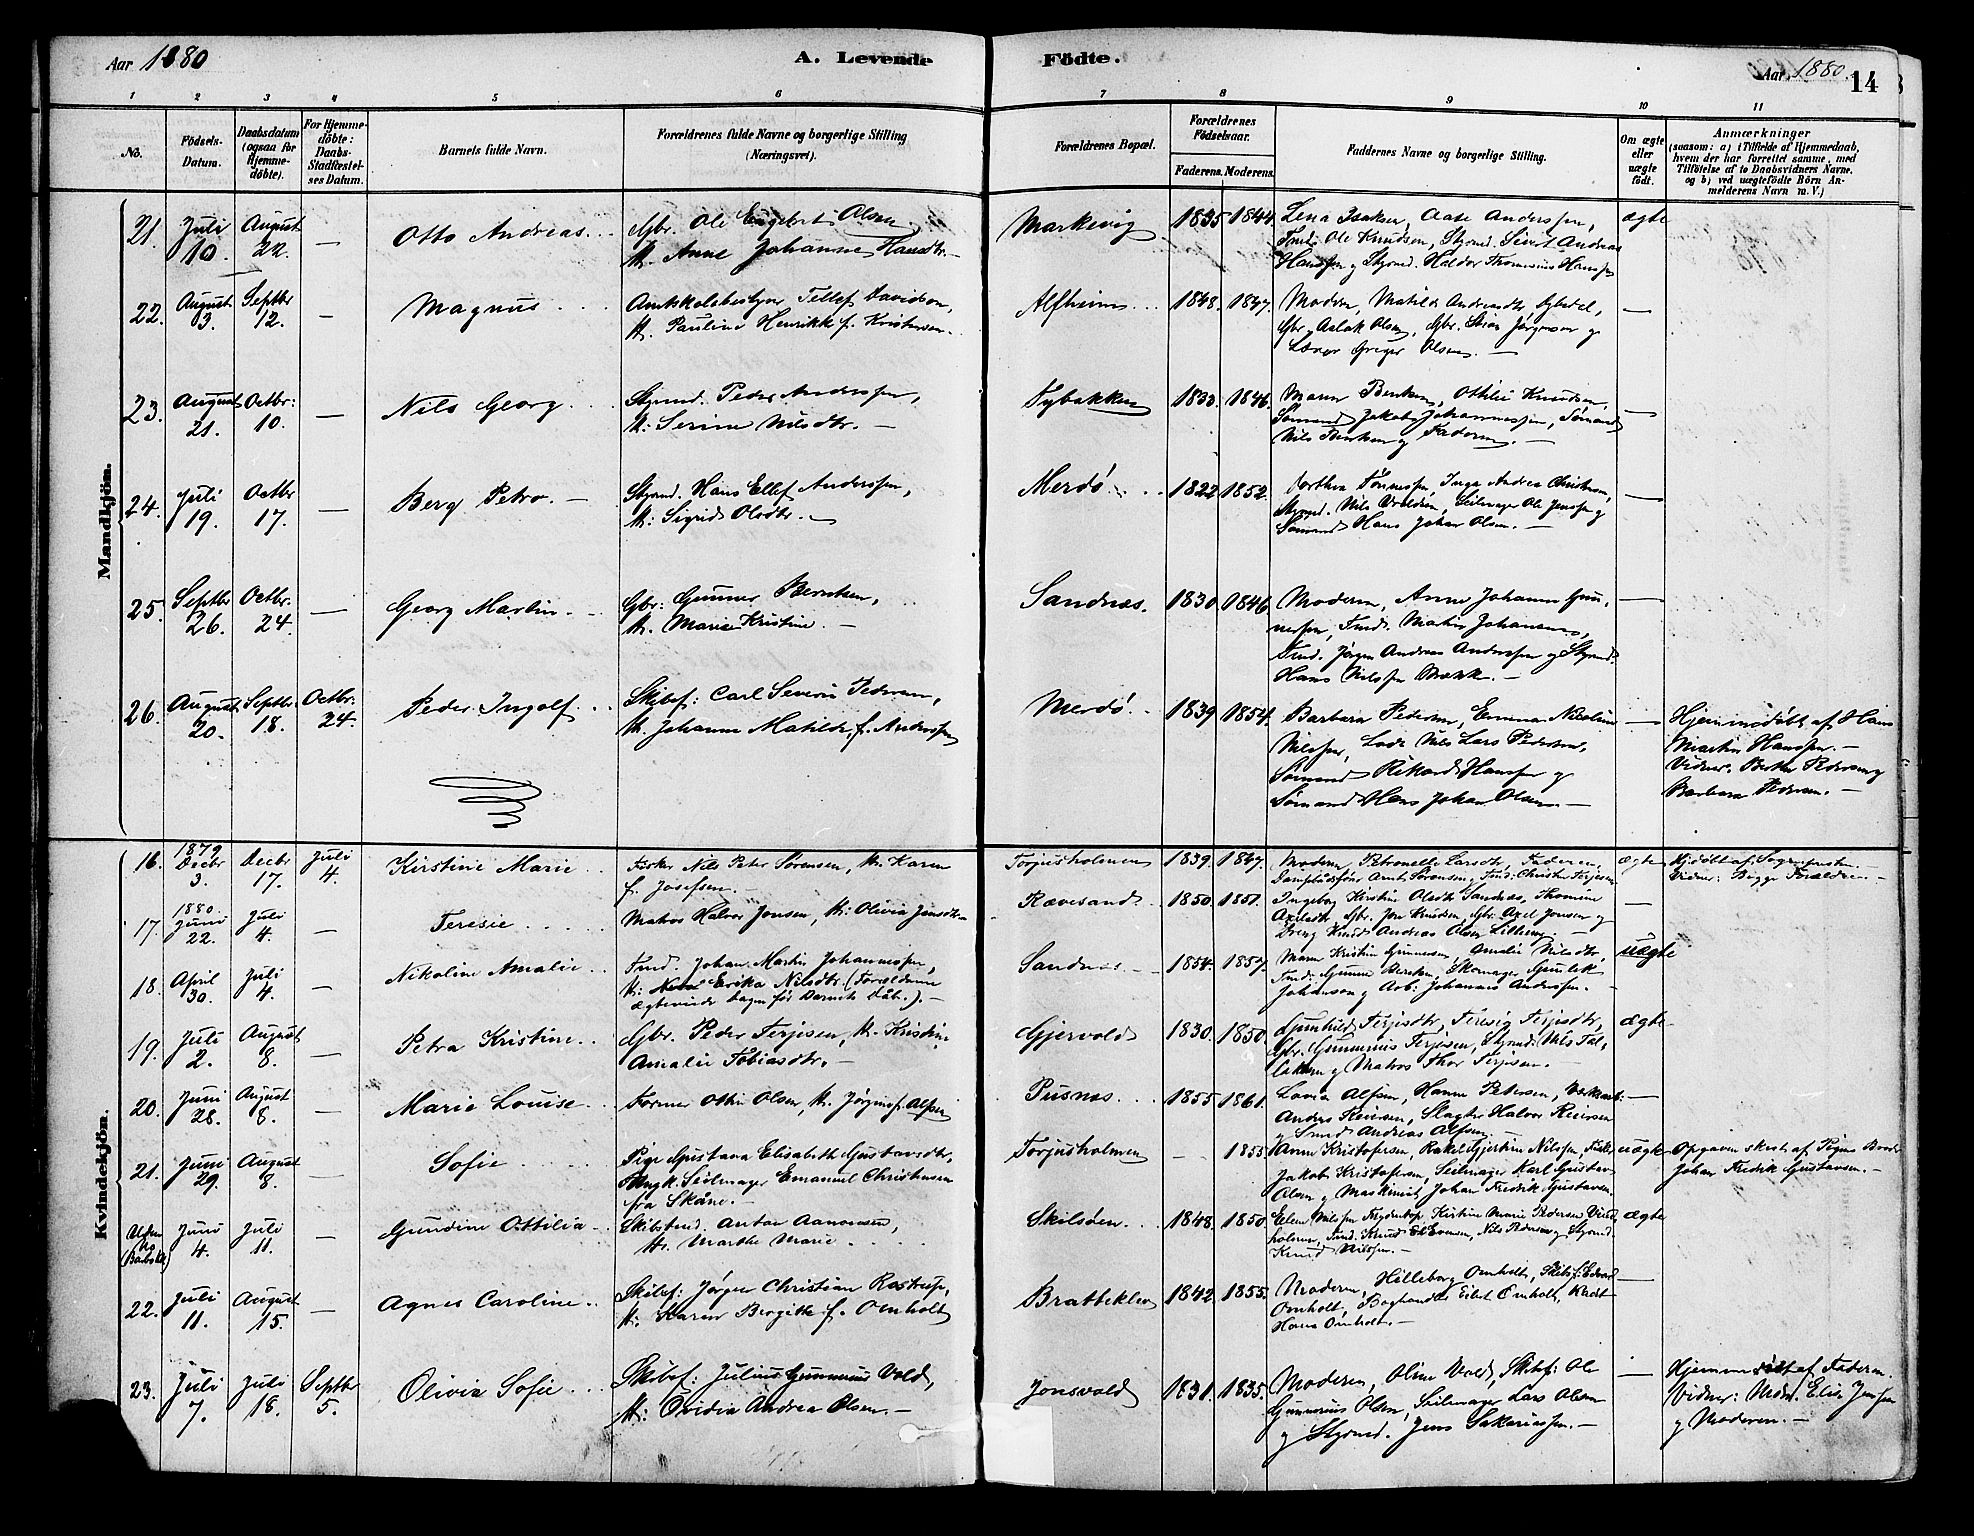 Aar 1880
A. Levende
Födte.
Aar 1880.
14
1 2 3 4 5 6 7 8 9 10 11
No.
Födsels-Datum.
Daabsdatum (ogsaa for Hjemme-döbte).
For Hjemme-döbte: Daabs-Stadfæstel-ses Datum.
Barnets fulde Navn.
Forældrenes fulde Navne og borgerlige Stilling (Næringsvei).
Forældrenes Bopæl.
Forældrenes Födselsaar.
Faderens. Moderens.
Faddernes Navne og borgerlige Stilling.
Om ægte eller uægte födt.
Anmærkninger
(saasom: a) i Tilfælde af Hjemmedaab, hvem der har forrettet samme, med Tilföielse af to Daabsvidners Navne, og b) ved uægtefödte Börn An-melderens Navn m. V.)
Mandkjön.
21. Juli 10. August 22. — Otto Andreas Gbr. Ole Engebret Olsen
K. Anne Johanne Hansdtr. —
Markevig 1835 1844 Lena Isaksen, Aase Anderssen,
Ole Knudsen, Styrmd. Sivert Andreas
Hanssen og Styrmd. Haldor Thomenius Hanssen
ægte
22. August 3. Septbr 12. — Magnus Tellef Davidson,
K. Pauline Henrikke f. Kristensen
Alfheim 1848. 1847. Moderen, Matilde Andreasdtr
Gbr. Aslak Olsen, Gbr. Stian Jörgensen og
Greger Olsen. —
23. August 21. Octbr: 10. — Nils Georg Styrmd. Peder Anderssen,
K: Serine Nilsdtr. —
Tybakken 1833. 1846. Maren Bentsen, Othilie Knudsen,
Sömand Jakob Johannessen, Sömand
Nils Bentsen og Faderen. —
24. Juli 19. Octbr 17. — Berg Petro. — Styrmd. Hans Ellef Anderssen,
K: Sigrid Olsdtr. —
Merdö 1822 1852. Dorthea Tönnessen, Inga Andrea Christensen,
Styrmd. Nils Seilmager Ole Jenssen og
Sömand Hans Johan Olsen. —
25. Septbr 26. Octbr. 24. — Georg Martin Gbr: Gunner Berntsen,
K. Marie Kristine. —
Sandnæs. 1830 1846 Moderen, Anne Johanne Gun-
nessen, Tmd. Martin Johansen,
Tmd. Jörgen Andreas Anderssen og Styrmd.
Hans Nilssen —
26. August 20. Septbr. 18. Octbr. 24. Peder Ingolf Skibsf: Carl Severin Pedersen,
K. Johanne Matilde, f. Anderssen
Merdö. 1839 1854. Barbara Pedersen, Emma Nicoline
Nilssen, Lods Nils Lars Pedersen,
Sömand Rikard Hanssen og
Sömand Hans Johan Olsen. —
Hjemmedöbt af Hans
Martin Hanssen. —
Vidner: Berthe Pedersen og
Barbara Pedersen. —
Kvindekjön.
16. 1879 Decbr 3. Decbr 17. Juli 4. Kirstine Marie Fisker Nils Peter Sörensen, K. Karen
f. Josefsen. —
Torjusholmen 1839. 1847. Moderen, Petronelle Larsdtr, Faderen,
Arnt Sörensen, Tmd. Christen Terjesen
ægte Hjdöbt af Sogneprsten.
Vidner: Begge Forældrene. —
17. 1880. Juni 22. Juli 4. — Teresie Matros Halvor Jonsen, K: Olivia Jensdtr. —
Rævesand 1850. 1851. Ingeborg Kirstine Olsdtr Sandnæs, Thomine
Axelsdtr, Gbr. Jon Knudsen, Gbr. Axel Jonsen og
Dreng Knud Andreas Olsen —
18. April 30. Juli 4. — Nikoline Amalie Tmd. Johan Martin Johannessen,
K: Erika Nilsdtr. (Forældrene
ægteviede dagen för Barnets Daab.). —
Sandnæs 1854. 1857. Maren Kristine Gunnersen, Amalie Nilsdtr,
Tmd. Gunner Berntsen, Skomager Gunlek
Johansen og Arb: Johannes Anderssen. —
uægte
19. Juli 2. August 8. — Petra Kristine Gbr. Peder Terjesen, K. Kristine
Amalie Tobiasdtr. —
Gjervold 1830. 1850. Gunhild Terjesdtr, Teresie Terjesdtr,
Gbr. Gunnenius Terjesen, Styrmd. Nils Tal-
laksen og Matros Thor Terjesen.
ægte
20. Juni 28. August 8. — Marie Louise Former Othin Olsen, K. Jörgine f. Alfsen
Pusnæs 1855 1861. Lovise Alfsen, Hanne Petersen,
Anders Reiersen, Slagter Halvor Reiersen
og Smed Andreas Alfsen
21. Juni 29. August 8. — Sofie Pige Gustava Elisabeth Gustavsdtr,
Ungk. Seilmager Emanuel Christensen
fra Skåne. —
Torjusholmen — 1853 Anne Kristofersen, Rakel Gjertine Nilssen, Fisker
Jakob Kristofersen, Seilmager Karl Gustav
Olsen og Maskinist Johan Fredrik Gustavsen.
uægte Opgaven skeet af Pigens Broder
Johan Fredrik Gustavsen. —
Uden No (Barbodal) Juni 4. Juli 11. Gundine Ottilia Skibstmd. Anton Aanonsen,
K. Marthe Marie
Skilsöen. 1848. 1850. Elene Nilssen Kirstine Marie Pedersen
holmen, Tmd. Knud Evensen, Nils Pedersen og Styrmd.
Knud Nilssen. —
ægte
22. Juli 11. August 15. — Agnes Caroline Skibsf: Jörgen Christian Rostrup,
K. Karen Bergitte f. Omholt
Bratteklev 1842 1855. Moderen, Hilleborg Omholt, Skibsf: Edvard
Omholt, Boghandler Eilert Omholt, Kadet
Hans Omholt. —
23. Juli 7. Juli 18. Septbr 5. Olivia Sofie Skibsf: Julius Gunnenius Vold,
K: Ovidia Andrea Olsen. —
Jonsvold 1831. 1835. Moderen, Oline Vold, Skibsf: Ole
Gunnerius Olsen, Seilmager Lars Olsen
og Styrmd. Jens Sakariassen. —
Hjemmedöbt af Faderen.
Vidner: Madm. Elise Jenssen
og Moderen. —